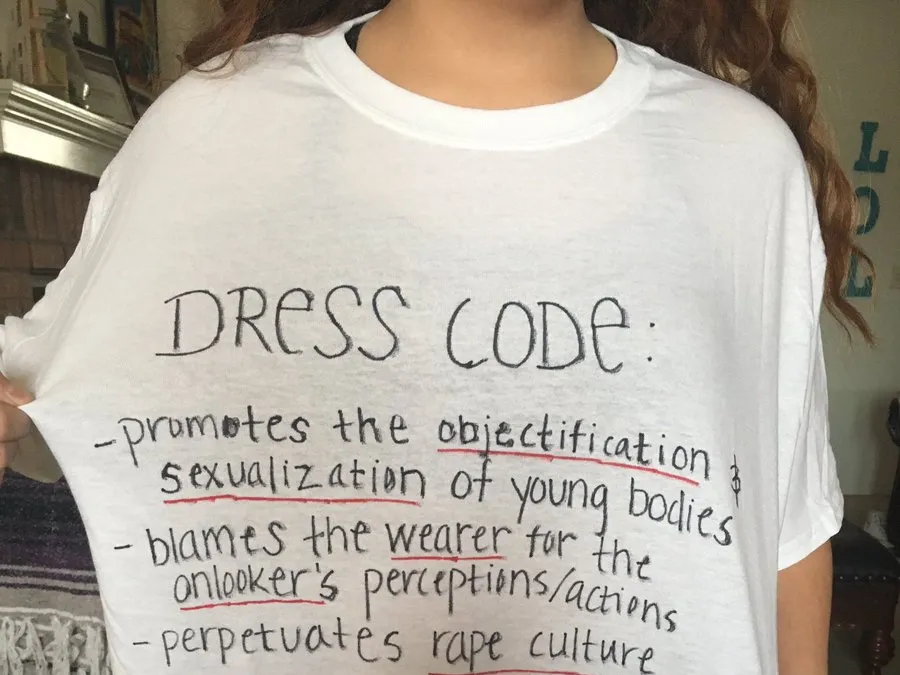 DRESS CODE:
-promotes the objectification &
sexualization of young bodies
- blames the wearer for the
onlooker's perceptions/actions
- perpetuates rape culture
LOL